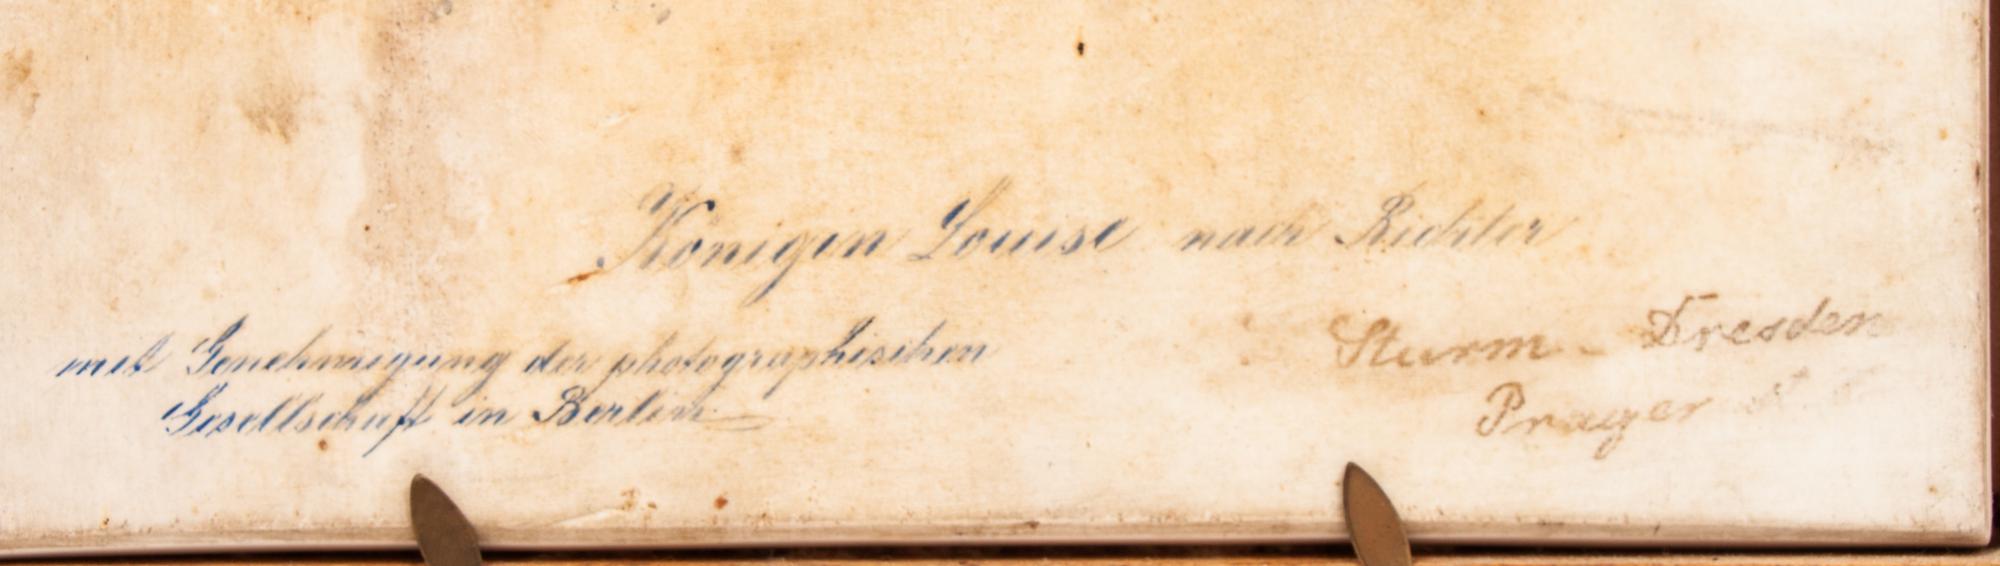 Königin Louise nach Richter
mit Genehmigung der photographischen
Gesellschaft in Berlin
Sturm - Dresden
Prager